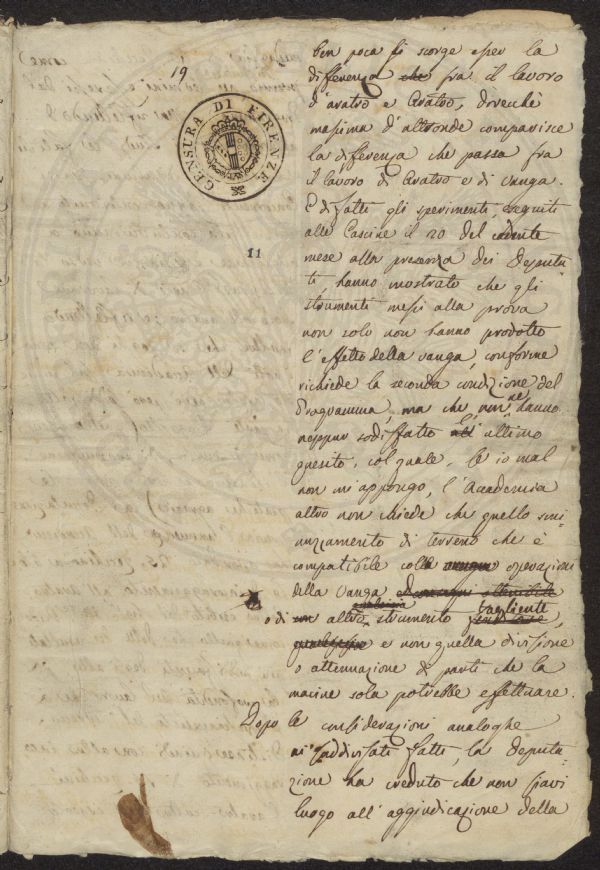 19
CENSURA DI FIRENZE
11
ben poca si scorge esser la
differenza che fra il lavoro
d'aratro e Aratro, dovecchè
massima d'altronde comparisce
la differenza che passa fra
il lavoro di Aratro e di vanga.
E di fatti gli sperimenti eseguiti
alle Cascine il 20 del cadente
mese alla presenza dei Deputa
ti, hanno mostrato che gli
strumenti messi alla prova
non solo non hanno prodotto
l'effetto della vanga, conforme
richiede la seconda condizione del
Programma, ma che non ne hanno
neppur sodisfatto all' ultimo
quesito, col quale, se io mal
non mi appongo, l'Accademia
altro non chiede che quello smi=
nuzzamento di terreno che è
compatibile colle operazioni
della Vanga
o di un altro qualsisia strumento tagliente,
qualsisia e non quella divisione
o attenuazione di parti che la
macine sola potrebbe effettuare.
Dopo le considerazioni analoghe
ai suddivisati fatti, la Deputa
zione ha creduto che non siavi
luogo all'aggiudicazione della